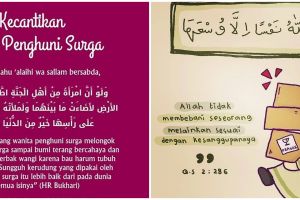 Kecantikan
Penghuni Surga
ahu 'alaihi wa sallam bersabda,
وَلَوْ أَنَّ امْرَأَةً مِنْ أَهْلِ الْجَنَّةِ
الأَرْضِ لأَضَاءَتْ مَا بَيْنَهُمَا وَلَمَلأَتْهُ
عَلَى رَأْسِهَا خَيْرٌ مِنَ الدُّنْيَا
ang wanita penghuni surga melongok
rga sampai bumi terang bercahaya dan
erbak wangi karena bau harum tubuh
Sungguh kerudung yang dipakai oleh
surga itu lebih baik dari pada dunia
emua isinya" (HR Bukhari)
نَفْسًا إِلَّا وُسْعَهَا
Allah tidak
membebani seseorang
melainkan sesuai
dengan kesanggupannya
Q.S 2 : 286